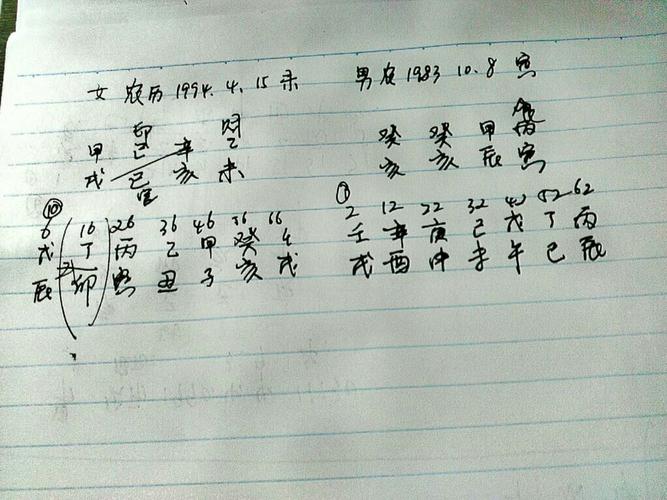 女 农历 1994. 4. 15 未 男 农 1983 10. 8 寅
甲 己 辛 乙 癸 癸 甲 丙
戌 巳 亥 未 亥 亥 辰 寅
⑩ ①
6 16 26 36 46 56 66 2 12 22 32 42 52 62
戊 丁 丙 乙 甲 癸 壬 壬 辛 庚 己 戊 丁 丙
辰 卯 寅 丑 子 亥 戌 戌 酉 申 未 午 巳 辰